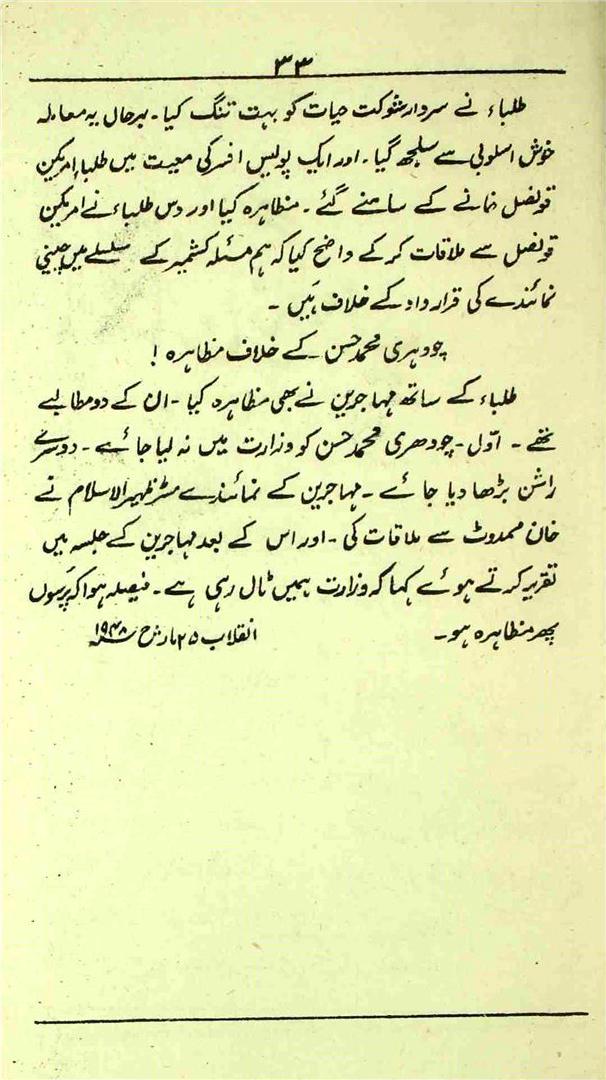 ۳۳
طلباء نے سردار شوکت حیات کو بہت تنگ کیا۔ بہرحال یہ معاملہ
خوش اسلوبی سے سلجھ گیا۔ اور ایک پولیس افسر کی معیت میں طلباء امریکن
قونصل خانے کے سامنے گئے۔ مظاہرہ کیا اور دس طلباء نے امریکن
قونصل سے ملاقات کر کے واضح کیا کہ ہم مسئلہ کشمیر کے سلسلے میں چینی
نمائندے کی قرارداد کے خلاف ہیں۔
چودہری محمد حسن کے خلاف مظاہرہ !
طلباء کے ساتھ مہاجرین نے بھی مظاہرہ کیا۔ ان کے دو مطالبے
تھے۔ اوّل۔ چودھری محمد حسن کو وزارت میں نہ لیا جائے۔ دوسرے
راشن بڑھا دیا جائے۔ مہاجرین کے نمائندے مسٹر ظہیر الاسلام نے
خان ممدوٹ سے ملاقات کی۔ اور اس کے بعد مہاجرین کے جلسہ میں
تقریر کرتے ہوئے کہا کہ وزارت ہمیں ٹال رہی ہے۔ فیصلہ ہوا کہ پرسوں
پھر مظاہرہ ہو۔ انقلاب ۲۵ مارچ ۱۹۴۸ء